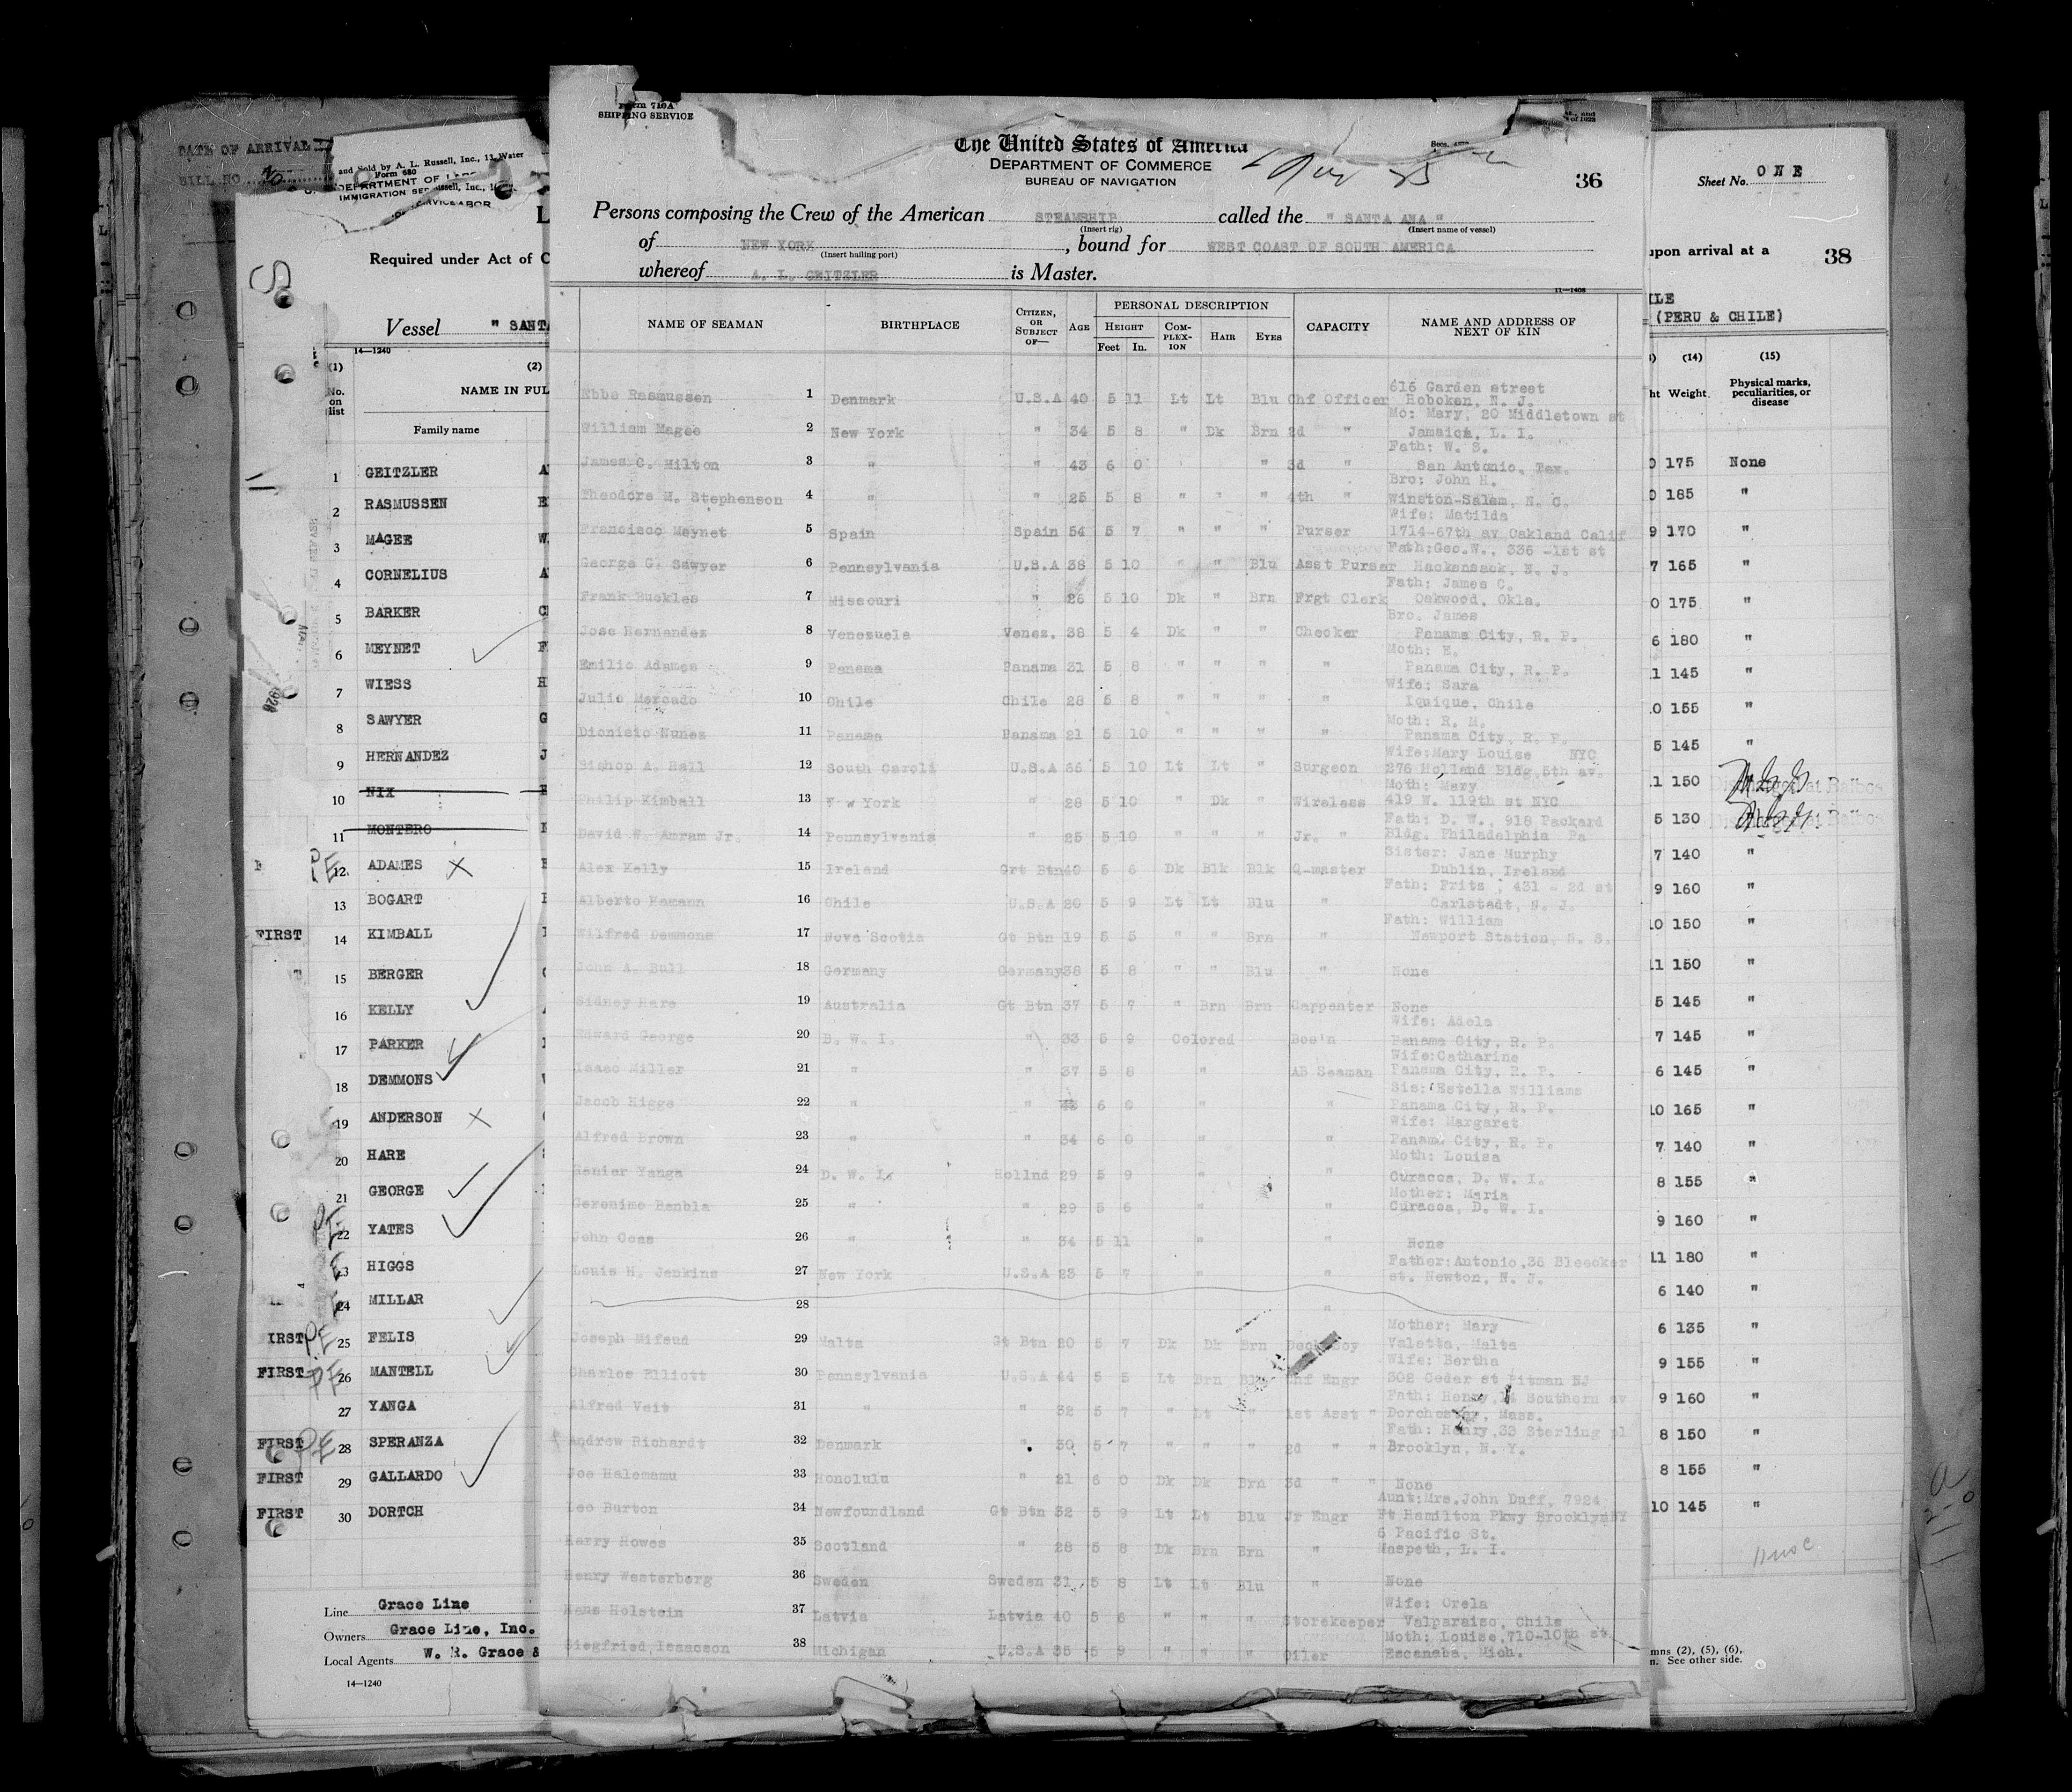 DATE OF ARRIVAL
BILL NO.
and Sold by A. L. Russell, Inc., 11 Water
Form 680
IMMIGRATION
Required under Act of
Vessel " SANTA
14—1240
(1) (2)
No. on list
NAME IN FUL
Family name
1 GEITZLER
2 RASMUSSEN
3 MAGEE
4 CORNELIUS
5 BARKER
6 MEYNET
7 WIESS
8 SAWYER
9 HERNANDEZ
10 NIX
11 MONTERO
PE 12 ADAMES X
13 BOGART
FIRST 14 KIMBALL
15 BERGER
16 KELLY
17 PARKER
18 DEMMONS
19 ANDERSON X
20 HARE
21 GEORGE
PE 22 YATES
23 HIGGS
24 MILLAR
IRST PE 25 FELIS
FIRST PE 26 MANTELL
27 YANGA
FIRST PE 28 SPERANZA
FIRST 29 GALLARDO
FIRST 30 DORTCH
Line Grace Line
Owners Grace Line, Inc.
Local Agents W. R. Grace &
14—1240
Form 710A
SHIPPING SERVICE
The United States of America
DEPARTMENT OF COMMERCE
BUREAU OF NAVIGATION
36
Persons composing the Crew of the American STEAMSHIP called the " SANTA ANA "
(Insert rig) (Insert name of vessel)
of NEW YORK, bound for WEST COAST OF SOUTH AMERICA
(Insert hailing port)
whereof A. L. GEITZLER is Master.
11—1408
NAME OF SEAMAN BIRTHPLACE CITIZEN, OR SUBJECT OF— AGE PERSONAL DESCRIPTION CAPACITY NAME AND ADDRESS OF NEXT OF KIN
HEIGHT COMPLEXION HAIR EYES
Feet In.
616 Garden street
Ebba Rasmussen 1 Denmark U.S.A 40 5 11 Lt Lt Blu Chf Officer Hoboken, N. J.
Mo: Mary, 20 Middletown st
William Magee 2 New York " 34 5 8 " Dk Brn 2d " Jamaica, L. I.
Fath: W. S.
James C. Milton 3 " " 43 6 0 " 3d " San Antonio, Tex.
Bro: John H.
Theodore M. Stephenson 4 " " 25 5 8 " " " 4th " Winston-Salem, N. C.
Wife: Matilda
Francisco Meynet 5 Spain Spain 54 5 7 " " " Purser 1714-67th av Oakland Calif
Fath:Geo.W., 336 -1st st
George G. Sawyer 6 Pennsylvania U.S.A 38 5 10 " " Blu Asst Purser Hackensack, N. J.
Fath: James C.
Frank Buckles 7 Missouri " 26 5 10 Dk " Brn Frgt Clerk Oakwood, Okla.
Bro. James
Jose Hernandez 8 Venesuela Venez. 38 5 4 Dk " " Checker Panama City, R. P.
Moth: E.
Emilio Adames 9 Panama Panama 31 5 8 " " " " Panama City, R. P.
Wife: Sara
Julio Mercado 10 Chile Chile 28 5 8 " " " " Iquique, Chile
Moth: R. M.
Dionisio Nunez 11 Panama Panama 21 5 10 " " " " Panama City, R. P.
Wife:Mary Louise NYC
Bishop A. Hall 12 South Caroli U.S.A 5 10 Lt Lt " Surgeon 276 Holland Bldg,5th av.
Moth: Mary
Philip Kimball 13 New York " 28 5 10 " Dk " Wireless 419 W. 119th st NYC
Fath: D. W., 918 Packard
David W. Amram Jr. 14 Pennsylvania " 25 5 10 " " " Jr. " Bldg. Philadelphia Pa
Sister: Jane Murphy
Alex Kelly 15 Ireland Grt Btn 40 5 6 Dk Blk Blk Q-master Dublin, Ireland
Fath: Frits , 431 - 2d st
Alberto Hamann 16 Chile U.S.A 20 5 9 Lt Lt Blu " Carlstadt, N. J.
Father: William
Wilfred Demmons 17 Nova Scotia Gt Btn 19 5 5 " " Brn " Newport Station, N. S.
John A. Bull 18 Germany Germany 38 5 8 " " Blu " None
Sidney Hare 19 Australia Gt Btn 37 5 7 " Brn Brn Carpenter None
Wife: Adela
Edward George 20 B. W. I. " 33 5 9 Colored Bos'n Panama City, R. P.
Wife:Catharine
Isaac Miller 21 " " 37 5 8 " AB Seaman Panama City, R. P.
Sis: Estella Williams
Jacob Higgs 22 " " 6 0 " " Panama City, R. P.
Wife: Margaret
Alfred Brown 23 " " 34 6 0 " " Panama City, R. P.
Moth: Louisa
Renier Yanga 24 D. W. I. Hollnd 29 5 9 " " Curacoa, D. W. I.
Mother: Maria
Geronimo Benbla 25 " " 29 5 6 " " Curacoa, D. W. I.
John Coas 26 " " 34 5 11 " " None
Father:Antonio,36 Bleecker
Louis H. Jenkins 27 New York U.S.A 23 5 7 " " st. Newton, N. J.
28 "
Mother: Mary
Joseph Mifsud 29 Malta Gt Btn 20 5 7 Dk Dk Brn Deck Boy Valetta, Malta
Wife: Bertha
Charles Elliott 30 Pennsylvania U.S.A 44 5 5 Lt Brn Blu Chf Engr 302 Cedar st Pitman NJ
Fath: Henry,14 Southern av
Alfred Veit 31 " " 32 5 7 " Lt " 1st Asst " Dorchester, Mass.
Fath: Henry,33 Sterling pl
Andrew Richardt 32 Denmark " 30 5 7 " " " 2d " " Brooklyn, N. Y.
Joe Halemamu 33 Honolulu " 21 6 0 Dk Dk Brn 3d " " None
Aunt:Mrs.John Duff, 7924
Leo Burton 34 Newfoundland Gt Btn 32 5 9 Lt Lt Blu Jr Engr Ft Hamilton Pkwy BrooklynNY
6 Pacific St.
Harry Howes 35 Scotland " 28 5 8 Dk Brn Brn " Maspeth, L. I.
Henry Westerberg 36 Sweden Sweden 31 5 8 Lt Lt Blu " None
Wife: Orela
Hans Holstein 37 Latvia Latvia 40 5 6 " " " Storekeeper Valparaiso, Chile
Moth: Louise,710-10th st.
Siegfried Isaacson 38 Michigan U.S.A 35 5 9 " " " Oiler Escanaba, Mich.
Sheet No. ONE
upon arrival at a 38
ILE
(PERU & CHILE)
(14) (15)
ht Weight Physical marks, peculiarities, or disease
0 175 None
0 185 "
9 170 "
7 165 "
0 175 "
6 180 "
1 145 "
0 155 "
5 145 "
1 150 Discharged at Balboa
5 130 Discharged at Balboa
7 140 "
9 160 "
10 150 "
11 150 "
5 145 "
7 145 "
6 145 "
10 165 "
7 140 "
8 155 "
9 160 "
11 180 "
6 140 "
6 135 "
9 155 "
9 160 "
8 150 "
8 155 "
10 145 "
mns (2), (5), (6),
n. See other side.